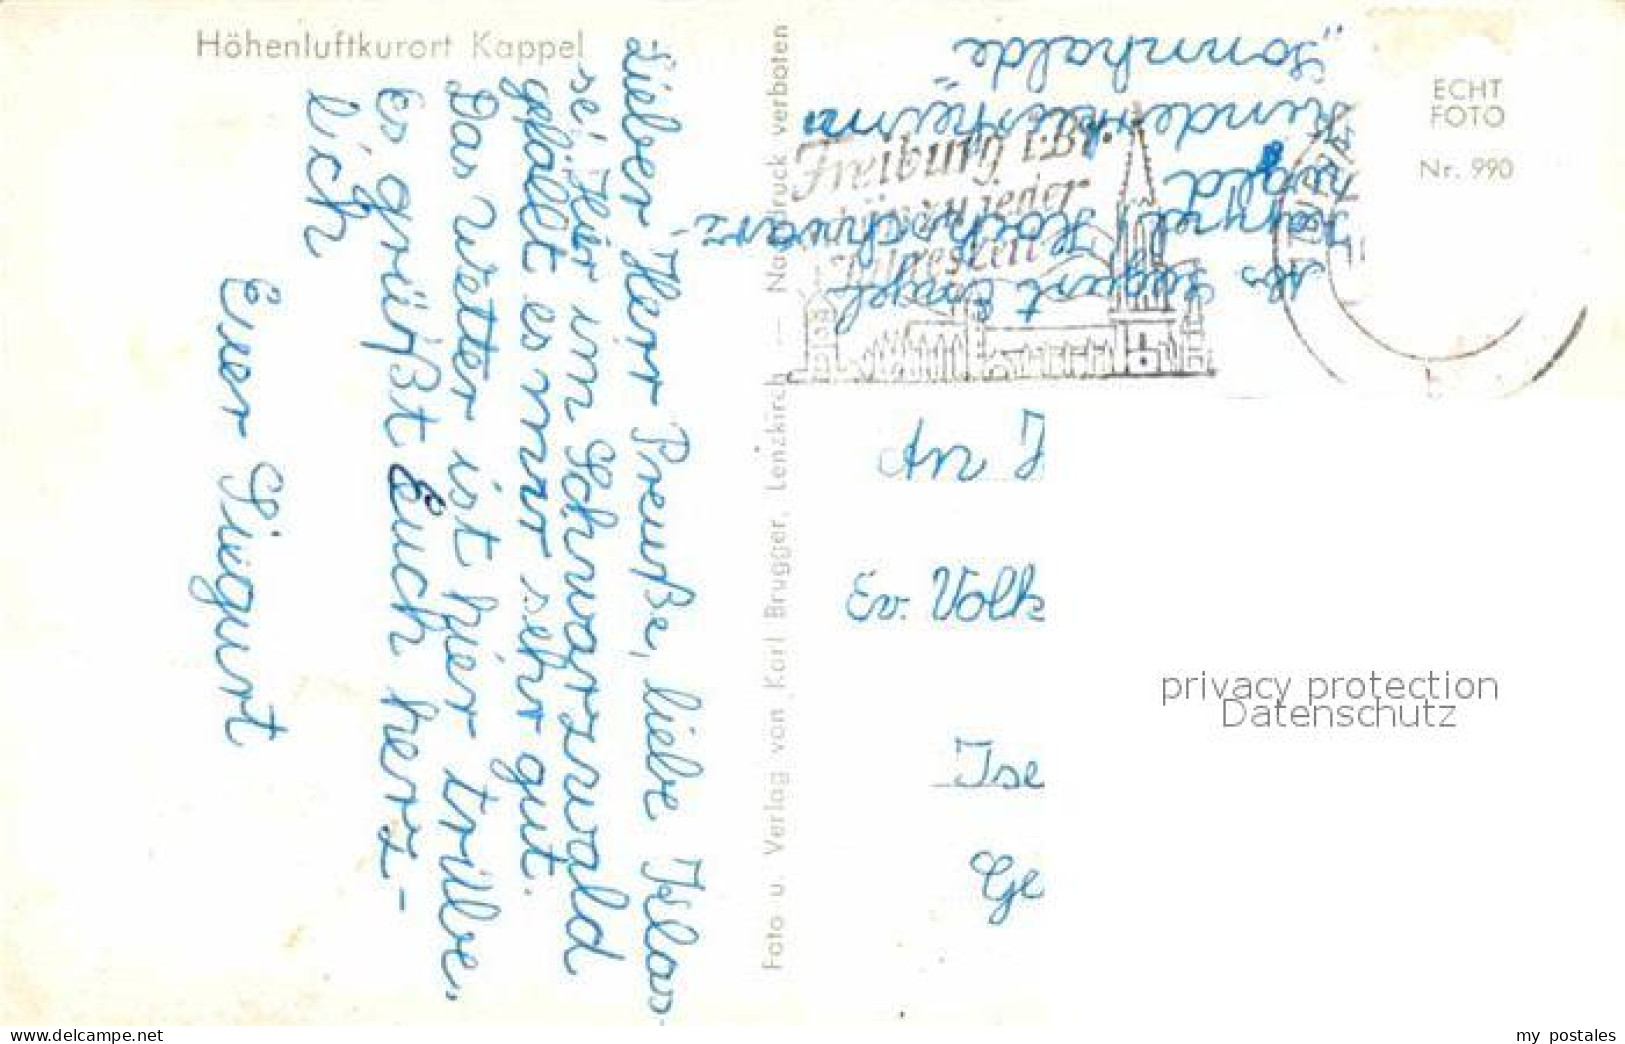 Höhenluftkurort Kappel
Lieber Herr Preuße, liebe Illas-
se! Hier im Schwarzwald
gefällt es mir sehr gut.
Das Wetter ist hier trübe.
Es grüßt Euch herz-
lich
Euer Siegurt
Foto u. Verlag von Karl Brugger, Lenzkirch — Nachdruck verboten
Abs Siegurt Engel
Kappel, Hochschwarz-
wald
Kinderkurheim
„Sonnhalde"
Freiburg i. Br.
ECHT
FOTO
Nr. 990
An
Ev. Volk
Ise
Ge
privacy protection
Datenschutz
www.delcampe.net
my_postales